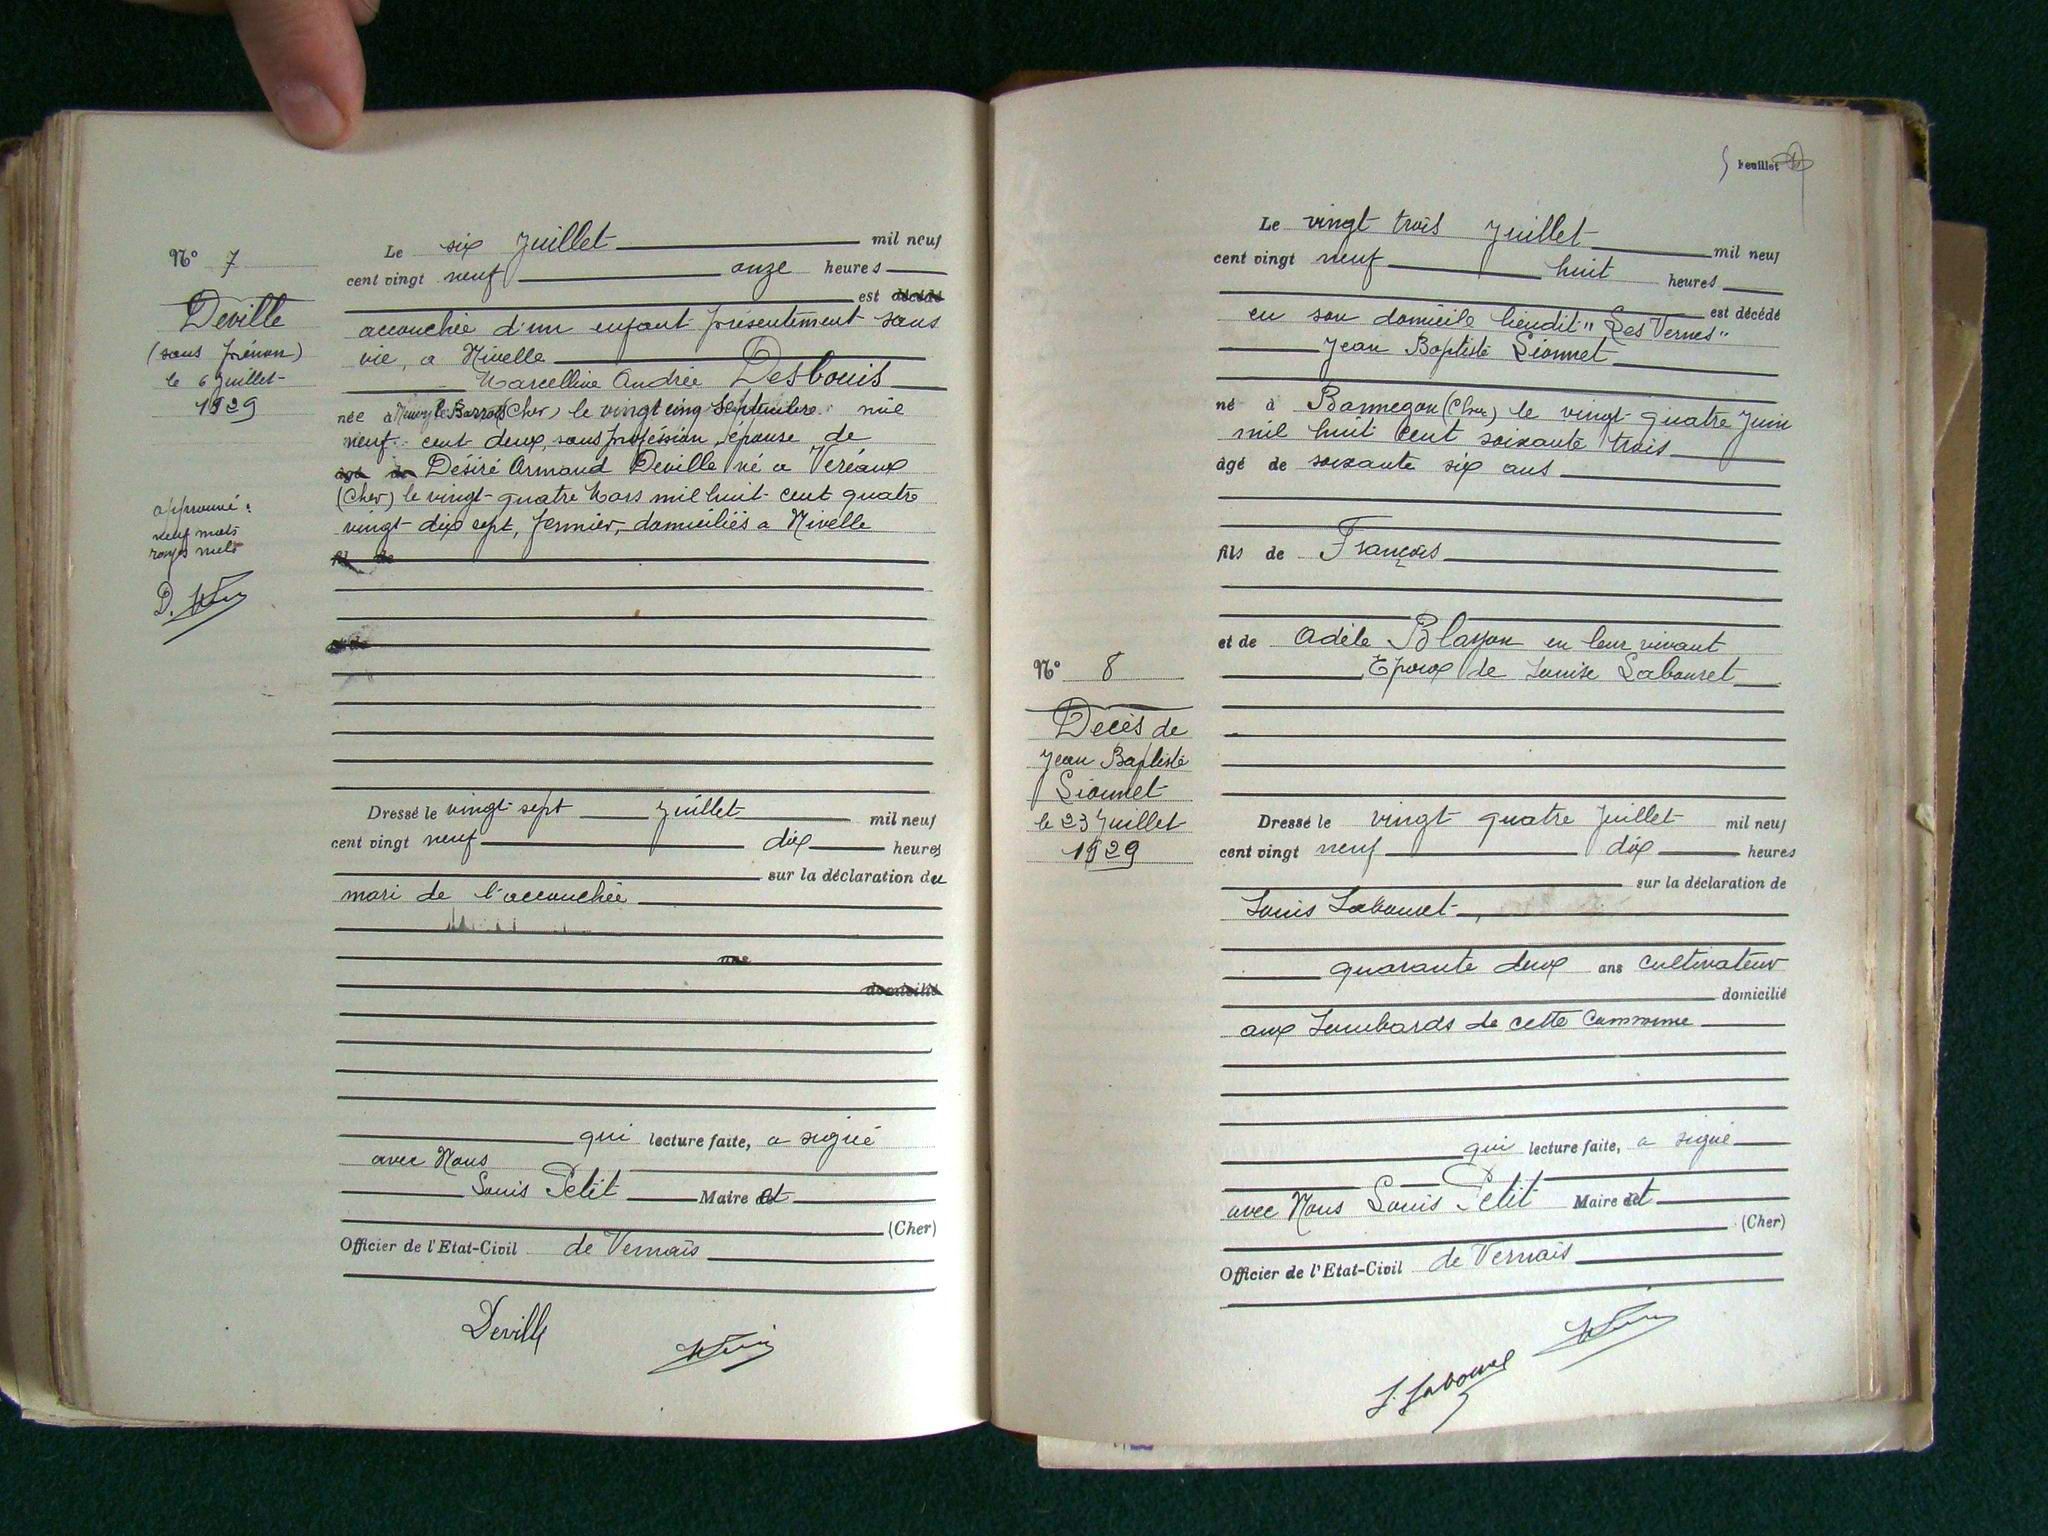 N° 7
Deville
(sans prénom)
le 6 juillet
1929
approuvé :
neuf mots
rayés nuls
Le six Juillet mil neuf
cent vingt neuf onze heures
est décédé
accouchée d'un enfant présentement sans
vie, a Nivelle
Marcelline Andrée Desbouis
née à (Cher) le vingt cinq septembre mil
neuf cent deux, sans profession, épouse de
âgé de Désiré Armand Deville né a Vereaux
(Cher) le vingt-quatre Mars mil huit-cent quatre
vingt-dix sept, fermier, domiciliés a Nivelle
fil de
et de
Dressé le vingt-sept Juillet mil neuf
cent vingt neuf dix heures
sur la déclaration du
mari de l'accouchée
domicilié
qui lecture faite, a signé
avec Nous
Louis Petit Maire et
(Cher)
Officier de l'Etat-Civil de Vernais
Deville
feuillet
Le vingt trois Juillet mil neuf
cent vingt neuf huit heures
est décédé
en son domicile lieudit "Les Vernes"
Jean Baptiste Sionnet
né à Bannegon (Cher) le vingt-quatre Juin
mil huit cent soixante trois
âgé de soixante six ans
fils de François
et de Adèle Blayon en leur vivant
Epoux de Louise Labouret
N° 8
Décès de
Jean Baptiste
Sionnet
le 23 Juillet
1929
Dressé le vingt quatre Juillet mil neuf
cent vingt neuf dix heures
sur la déclaration de
Louis Labouret
quarante deux ans cultivateur
domicilié
aux Lombards de cette Commune
qui lecture faite, a signé
avec Nous Louis Petit Maire et
(Cher)
Officier de l'Etat-Civil de Vernais